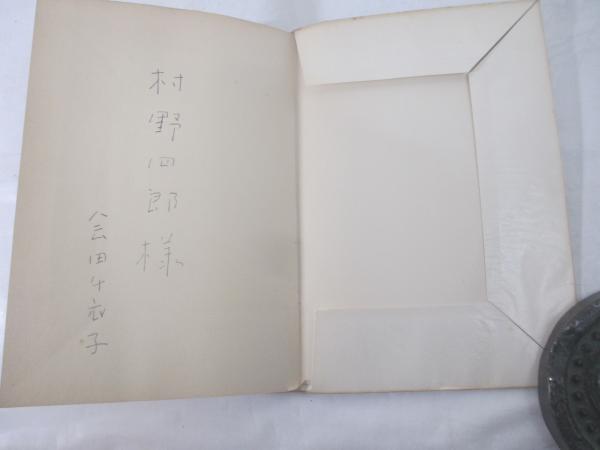 村野四郎様
会田千衣子